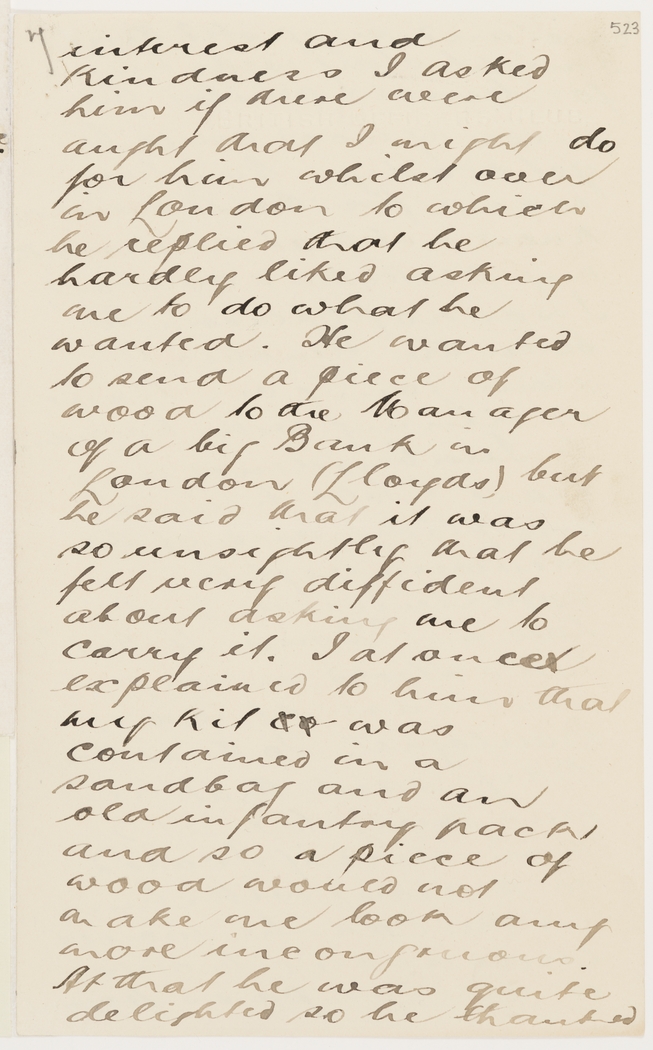 523
interest and
kindness I asked
him if there were
aught that I might do
for him whilst over
in London to which
he replied that he
hardly liked asking
me to do what he
wanted. He wanted
to send a piece of
wood to the Manager
of a big Bank in
London (Lloyds) but
he said that it was
so unsightly that he
felt very diffident
about asking me to
carry it. I at once
explained to him that
my kit was
contained in a
sandbag and an
old infantry pack,
and so a piece of
wood would not
make me look any
more incongruous.
At that he was quite
delighted so he thanked